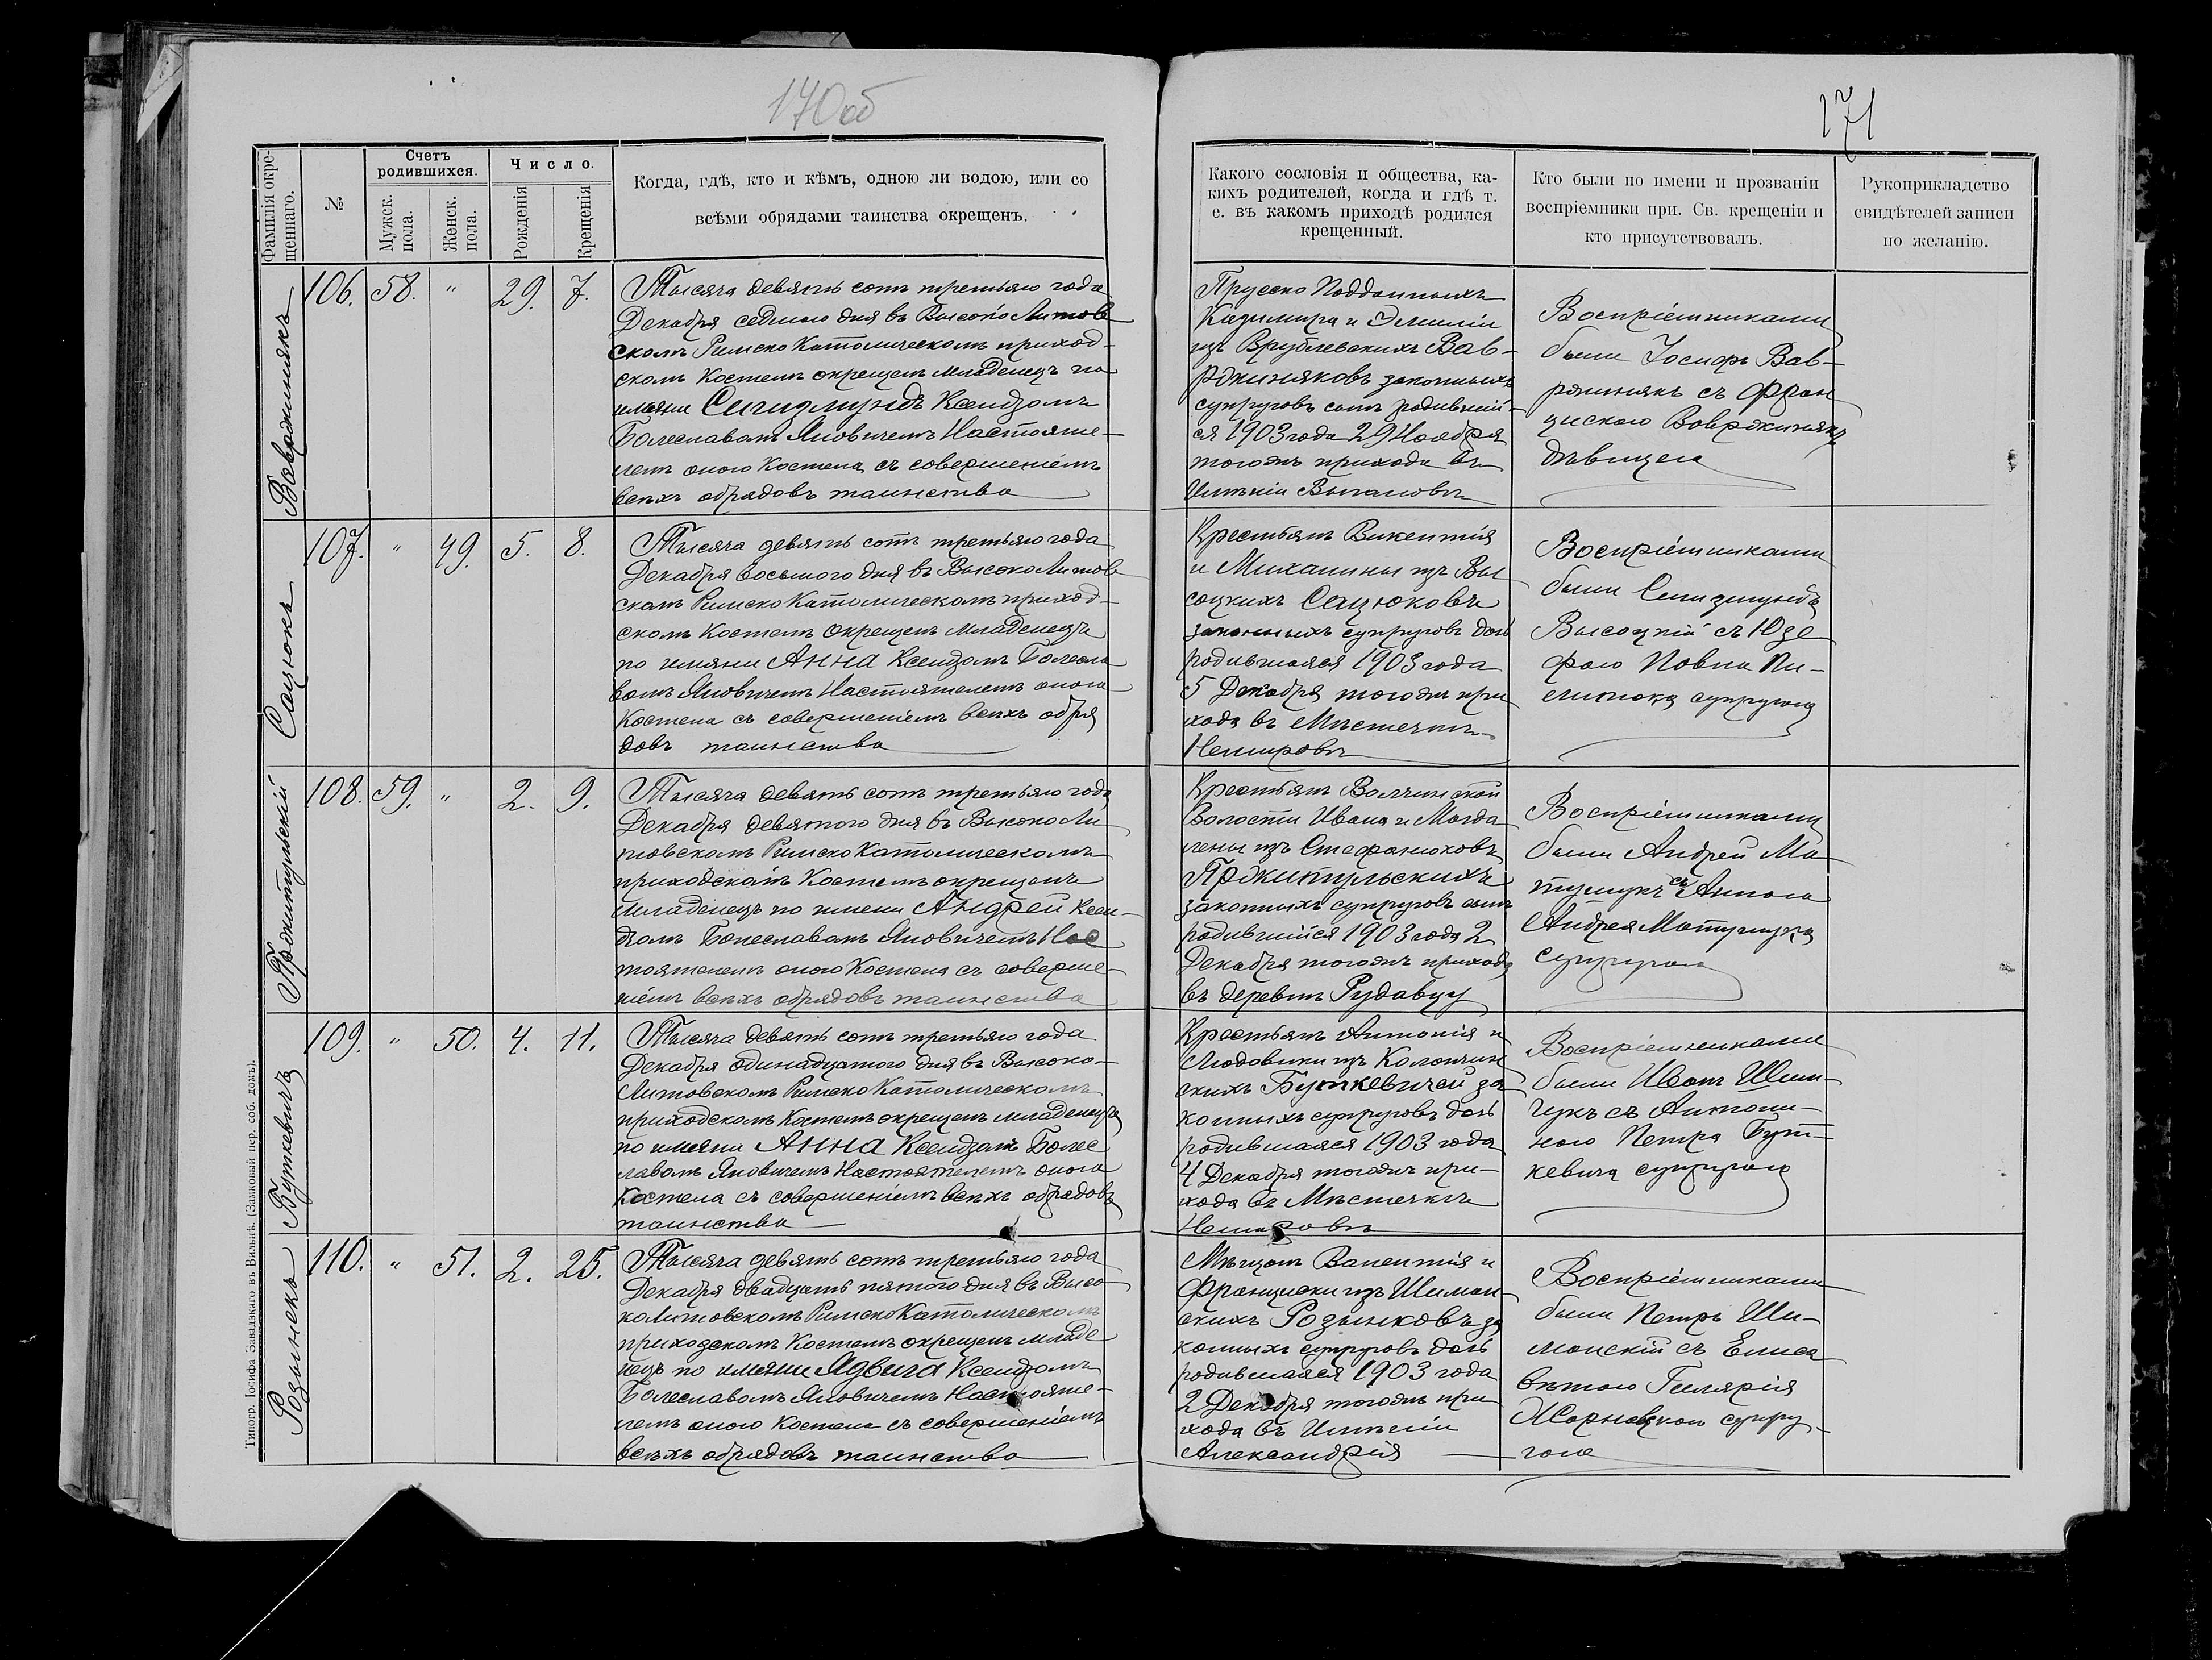 170об
171
Фамилія окре-
щеннаго.
№
Счетъ
родившихся.
Мужск.
пола.
Женск.
пола.
Число.
Рожденія
Крещенія
Когда, гдѣ, кто и кѣмъ, одною ли водою, или со
всѣми обрядами таинства окрещенъ.
Какого сословія и общества, ка-
кихъ родителей, когда и гдѣ т.
е. въ какомъ приходѣ родился
крещенный.
Кто были по имени и прозванiи
воспріемники при. Св. крещеніи и
кто присутствовалъ.
Рукоприкладство
свидѣтелей записи
по желанію.
Вавржинякъ
106. 58. " 29. 7.
Тысяча девять сотъ третьяго года
Декабря седьмаго дня въ Высоко Литов
скомъ Римско Католическомъ приход-
скомъ Костелѣ окрещенъ младенецъ по
имени Сигизмундъ Ксендзомъ
Болеславомъ Яновичемъ Настояте-
лемъ оного Костела съ совершеніемъ
всѣхъ обрядовъ таинства
Прусско Подданныхъ
Казимира и Эмиліи
изъ Врублевскихъ Вав-
ржиняковъ законныхъ
супруговъ сынъ родившій-
ся 1903 года 29 Ноября
тогожъ прихода въ
Имѣніи Вычановѣ
Воспріемниками
были Іосифъ Вав-
ржинякъ съ Фран
цискою Вавржинякъ
дѣвицею
Сацюкъ
107. " 49. 5. 8.
Тысяча девять сотъ третьяго года
Декабря восьмого дня въ Высоко Литов
скомъ Римско Католическомъ приход-
скомъ Костелѣ окрещенъ младенецъ
по имяни Анна Ксендзомъ Болесла
вомъ Яновичемъ Настоятелемъ оного
Костела съ совершеніемъ всѣхъ обря
довъ таинства
Крестьянъ Викентія
и Михалины изъ Вы
соцкихъ Сацюковъ
законныхъ супруговъ дочь
родившаяся 1903 года
5 Декабря тогожъ при
хода въ Мѣстечкѣ
Немировѣ
Воспріемниками
были Сигизмундъ
Высоцкій съ Юзе
фою Павла
супругою
Пржитульскій
108. 59. " 2. 9.
Тысяча девять сотъ третьяго года
Декабря девятого дня въ Высоко Ли
товскомъ Римско Католическомъ
приходскомъ Костелѣ окрещенъ
младенецъ по имени Андрей Ксен-
дзомъ Болеславомъ Яновичемъ Нас
тоятелемъ оного Костела съ соверше-
ніемъ всѣхъ обрядовъ таинства
Крестьянъ Волчинской
Волости Ивана и Магда
лены изъ Стефанюковъ
Пржитульскихъ
законныхъ супруговъ сынъ
родившійся 1903 года 2
Декабря тогожъ прихода
въ деревнѣ Рудавцу
Воспріемниками
были Андрей Ма
тушукъ съ Анною
Андрея Матушука
супругою
Буткевичъ
109. " 50. 4. 11.
Тысяча девять сотъ третьяго года
Декабря одинадцатого дня въ Высоко-
Литовскомъ Римско Католическомъ
приходскомъ Костелѣ окрещенъ младенецъ
по имяни Анна Ксендзомъ Болес
лавомъ Яновичемъ Настоятелемъ оного
Костела съ совершеніемъ всѣхъ обрядовъ
таинства
Крестьянъ Антонія и
Людовики изъ Колончин
скихъ Буткевичей за
конныхъ супруговъ дочь
родившаяся 1903 года
4 Декабря тогожъ при-
хода въ Мѣстечкѣ
Немировѣ
Воспріемниками
были Иванъ Шим-
чукъ съ Антони-
ною Петра Бут-
кевича супругою
Розынекъ
110. " 51. 2. 25.
Тысяча девять сотъ третьяго года
Декабря двадцать пятого дня въ Высо
ко Литовскомъ Римско Католическомъ
приходскомъ Костелѣ окрещенъ младе
нецъ по имяни Ядвига Ксендзомъ
Болеславомъ Яновичемъ Настояте-
лемъ оного Костела съ совершеніемъ
всѣхъ обрядовъ таинства
Мѣщанъ Валентія и
Францишки изъ Шиман-
скихъ Розынковъ за
конныхъ супруговъ дочь
родившаяся 1903 года
2 Декабря тогожъ при
хода въ Имѣніи
Александрія
Воспріемниками
были Петръ Ши-
манскій съ Елиса
ветою Гилярія
Жарновскаго супру-
гою
Типогр. Іосифа Завадзкаго въ Вильнѣ. (Замковый пер. соб. домъ).